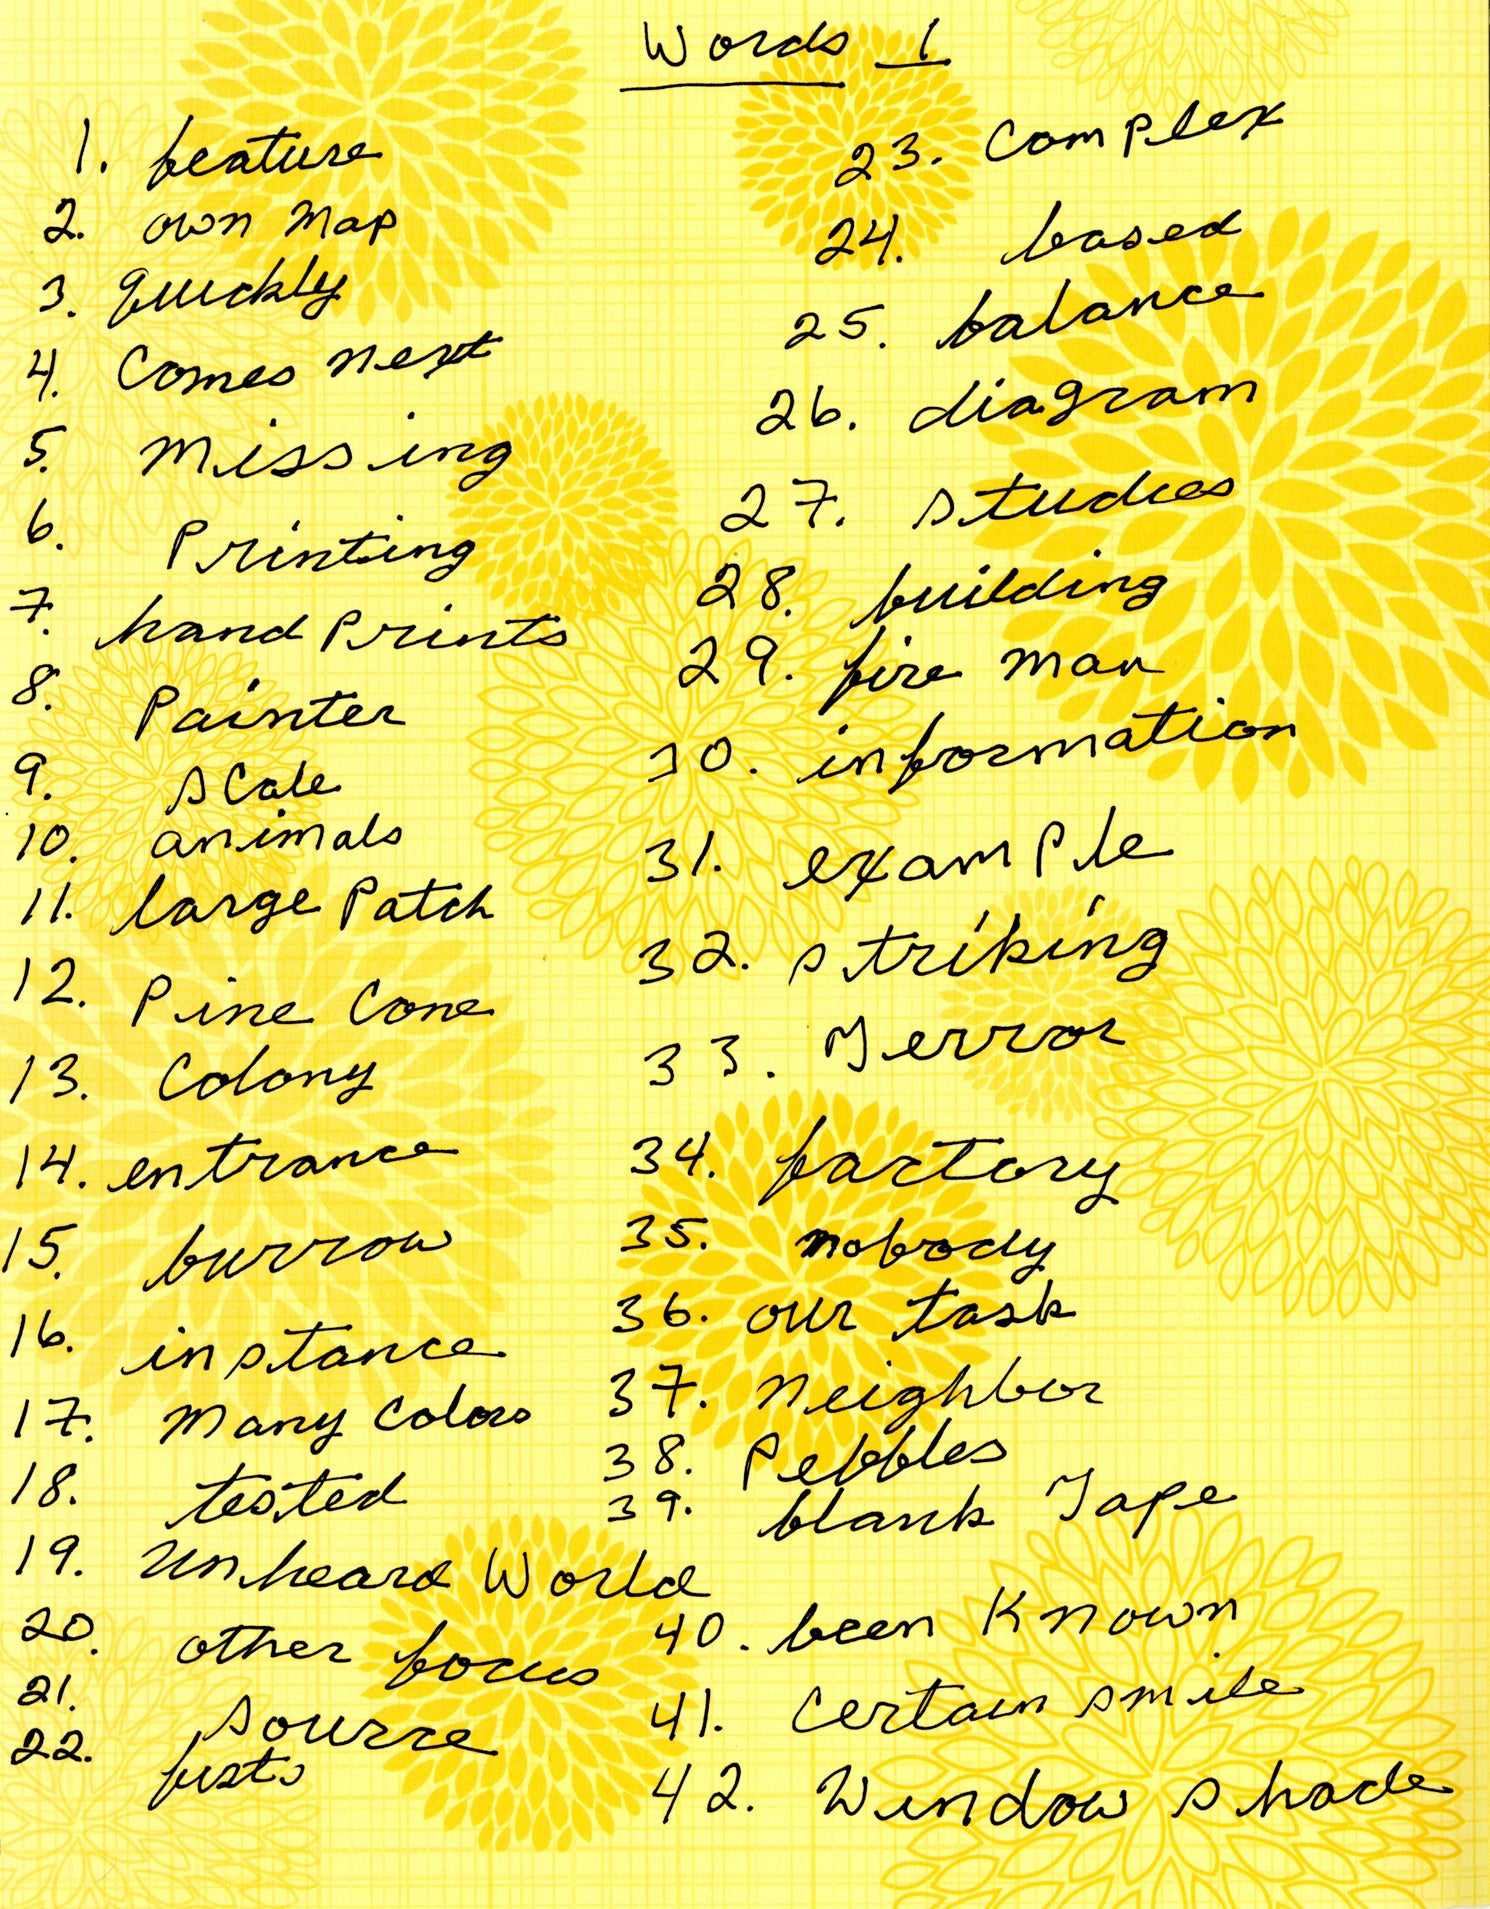 Words 1
1. feature
2. own Map
3. quickly
4. Comes next
5. Missing
6. Printing
7. hand Prints
8. Painter
9. Scale
10. animals
11. large Patch
12. Pine Cone
13. Colony
14. entrance
15. burrow
16. instance
17. Many Colors
18. tested
19. Unheard World
20. other focus
21. source
22. fists
23. Complex
24. based
25. balance
26. diagram
27. studies
28. building
29. fire man
30. information
31. example
32. striking
33. Terror
34. factory
35. nobody
36. our task
37. Neighbor
38. Pebbles
39. blank Tape
40. been Known
41. Certain smile
42. Window shade